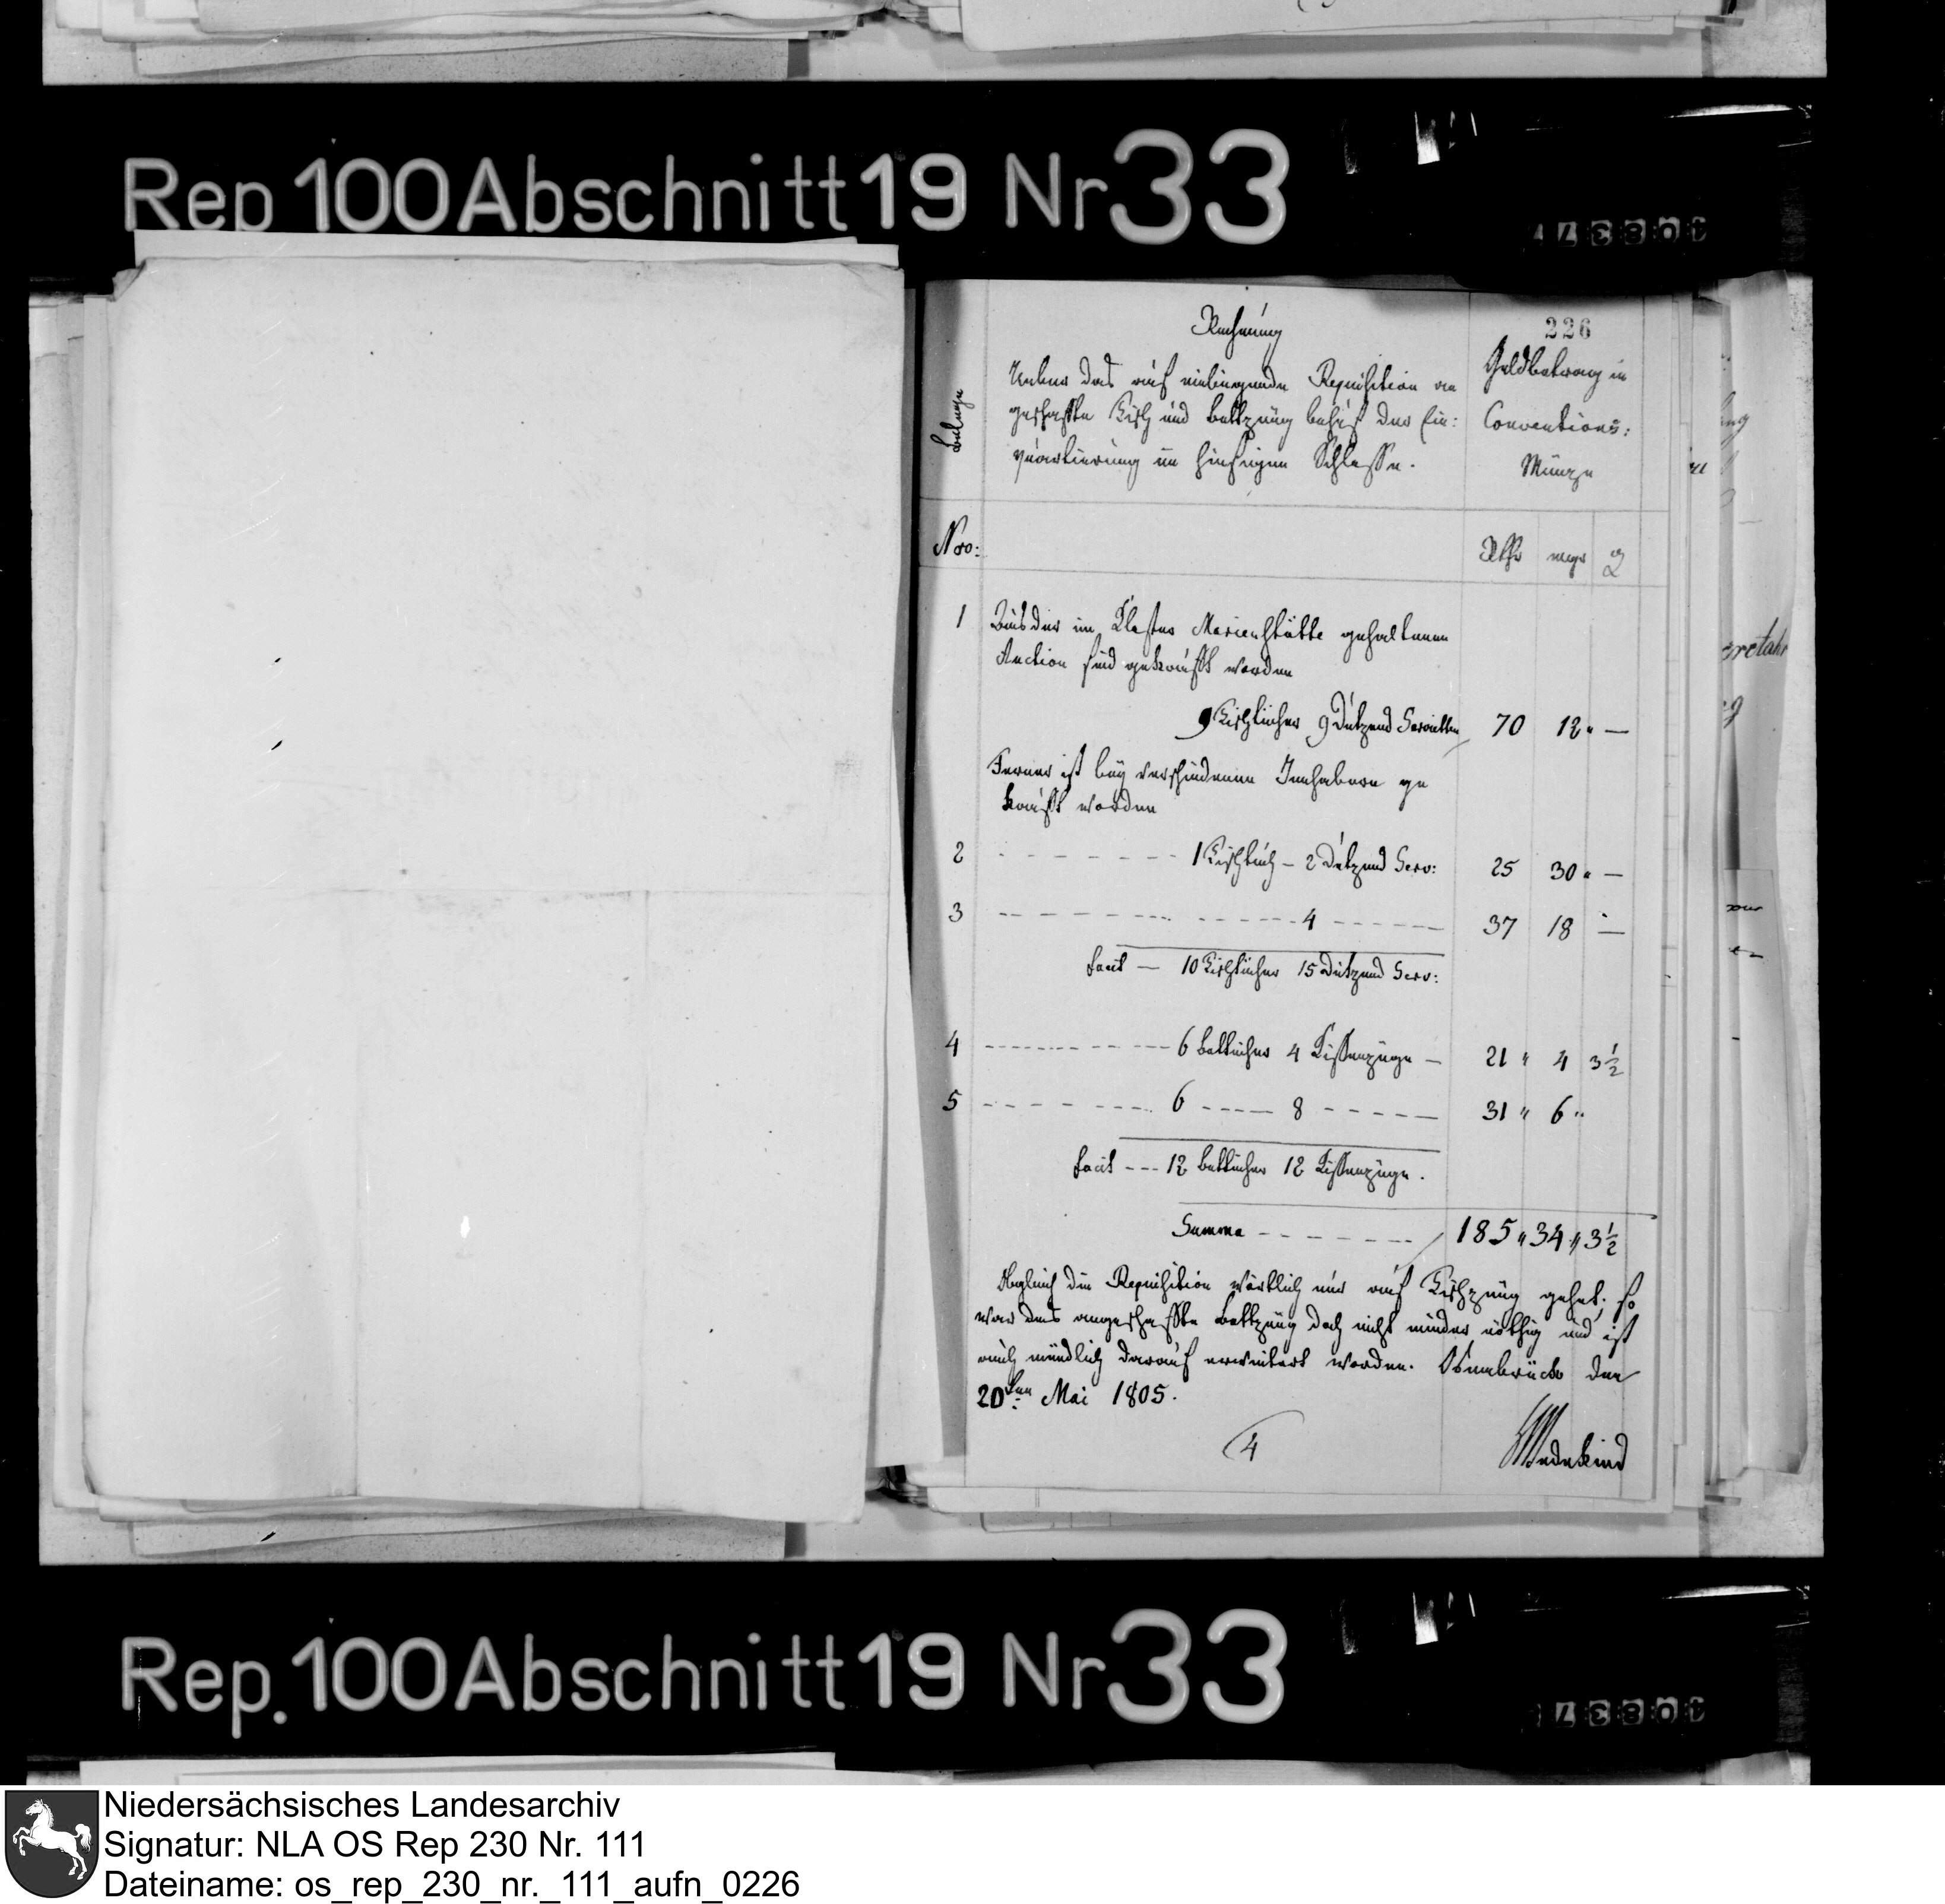 Rep 100 Abschnitt 19 Nr 33
226
Rechnung
Ueber das auf einliegende Requisition an
geschaffte Tisch und Bettzeug behuf der Ein:
quartierung im hiesigen Schlosse.
Geldbetrag in
Conventions:
Münze
Belege
Nro:
Rthr mgr ₰
1 Aus der im Kloster Marienstätte gehaltenen
Auction sind gekauft worden
9 Tischtücher 9 Dutzend Servietten 70 12 " —
Ferner ist bey verschiedenen Innhabern ge
kauft worden
2 - - - - - - - - 1 Tischtuch – 2 Dutzend Serv: 25 30 " —
3 - - - - - - - - - - - - 4 - - - - - - 37 18 " —
facit — 10 Tischtücher 15 Dutzend Serv:
4 - - - - - - - - 6 Betttücher 4 Kissenzüge — 21 " 4 3 1/2
5 - - - - - - - - 6 - - - - - 8 - - - - - - 31 " 6 "
facit - - - 12 Betttücher 12 Kissenzüge.
Summa - - - - - - - 185 " 34 " 3 1/2
Obgleich die Requisition wörtlich nur auf Tischzeug gehet; so
war das angeschaffte Bettzeug doch nicht minder nöthig und ist
auch mündlich darauf erweitert worden. Osnabrück den
20ten Mai 1805.
4
Wedekind
Rep. 100 Abschnitt 19 Nr 33
Niedersächsisches Landesarchiv
Signatur: NLA OS Rep 230 Nr. 111
Dateiname: os_rep_230_nr._111_aufn_0226